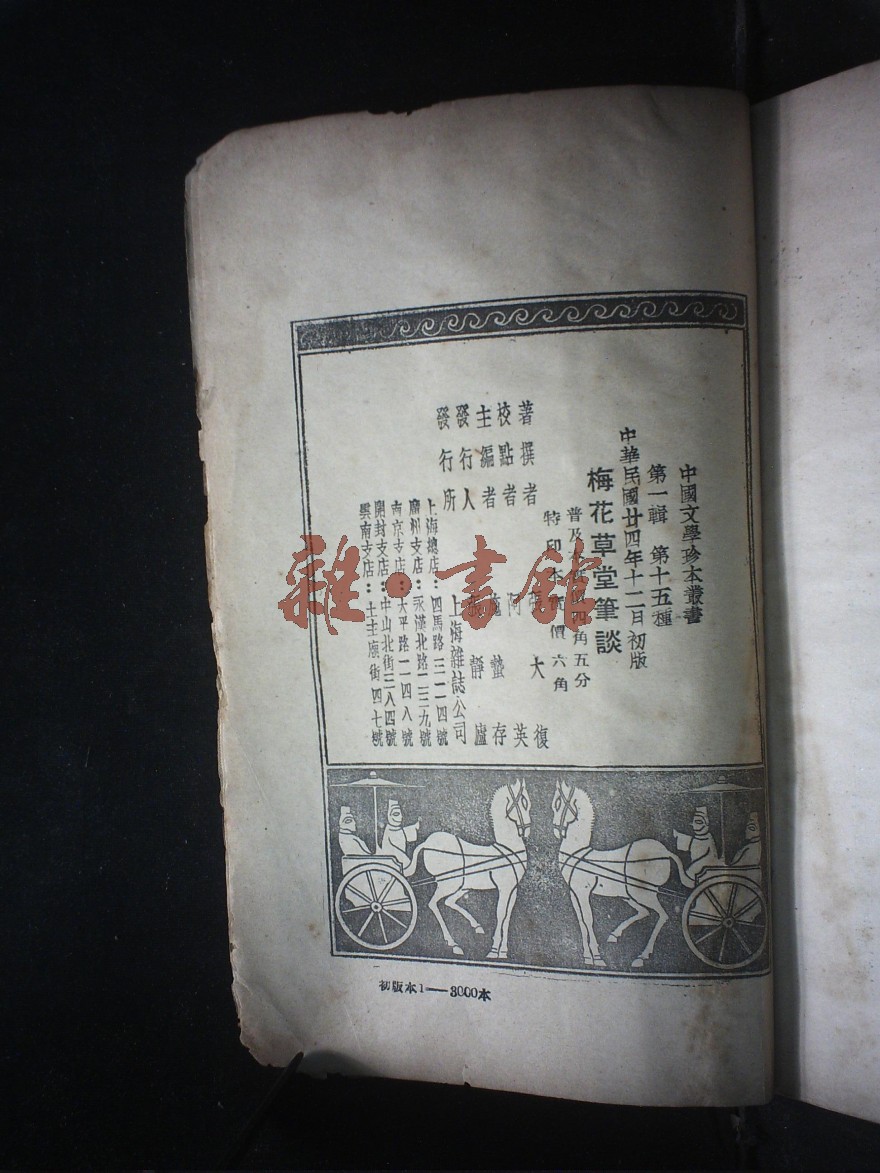 中國文學珍本叢書
第一輯 第十五種
中華民國廿四年十二月初版
梅花草堂筆談
普及本 四角五分
特印本 價六角
著撰者 張大復
校點者 阿英
主編者 施蟄存
發行人 張靜廬
發行所 上海雜誌公司
上海總店：四馬路三二四號
廣州支店：永漢北路 三九號
南京支店：太平路二四八號
開封支店：中山北街 八四號
雲南支店：土主廟街四七號
初版本1——3000本
雜·書館